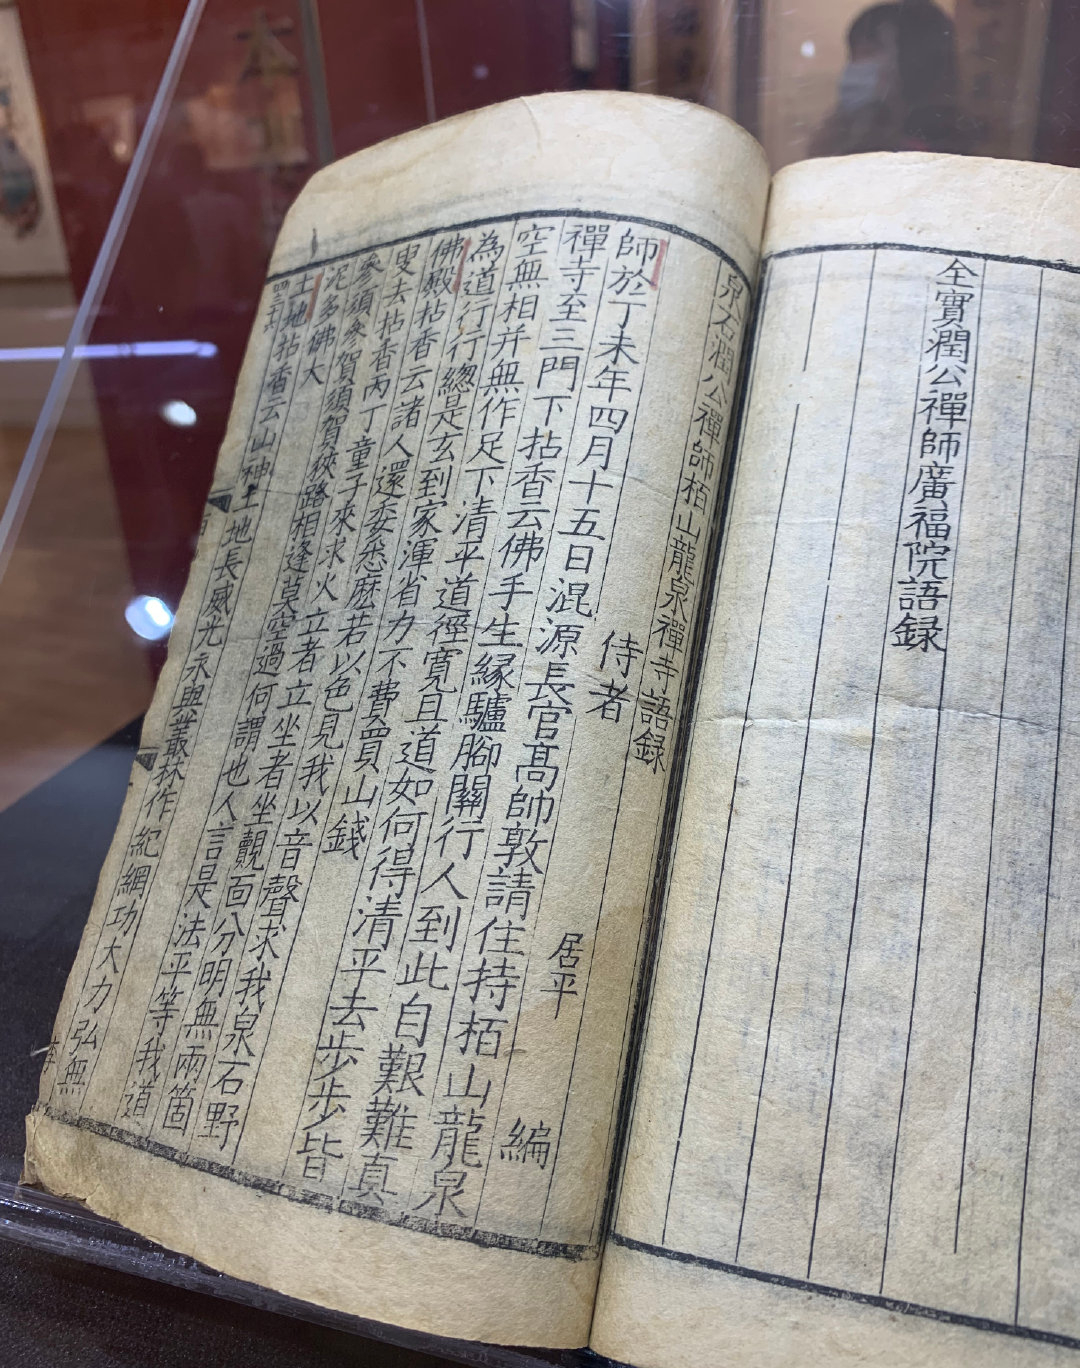 全實潤公禪師廣福院語録
泉石潤公禪師栢山龍泉禪寺語録
侍者 居平 編
師於丁未年四月十五日混源長官髙帥敦請住持栢山龍泉
禪寺至三門下拈香云佛手生縁驢腳關行人到此自艱難真
空無相并無作足下清平道徑寛且道如何得清平去步步皆
為道行行總是玄到家渾省力不費買山錢
佛殿拈香云諸人還委悉麽若以色見我以音聲求我泉石野
叟去拈香丙丁童子來求火立者立坐者坐覿面分明無兩箇
叅須叅賀須賀狹路相逢莫空過何謂也人言是法平等我道
泥多佛大
土地拈香云山神土地長威光永與叢林作紀綱功大力弘無